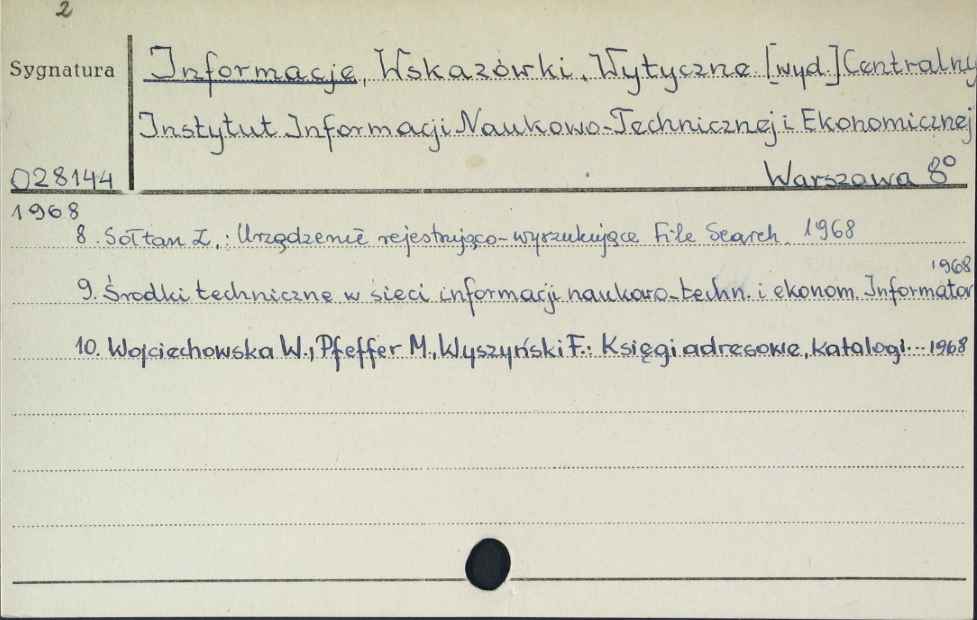 2
Sygnatura
Informacje, Wskazówki, Wytyczne [wyd.] Centralny
Instytut Informacji Naukowo-Technicznej i Ekonomicznej
028144
Warszawa 8°
1968
8. Sołtan Z.: Urządzenie rejestrująco-wyszukujące File Search 1968
1968
9. Środki techniczne w sieci informacji naukowo-techn. i ekonom. Informator
10. Wojciechowska W., Pfeffer M., Wyszyński F.: Księgi adresowe, katalogi... 1968